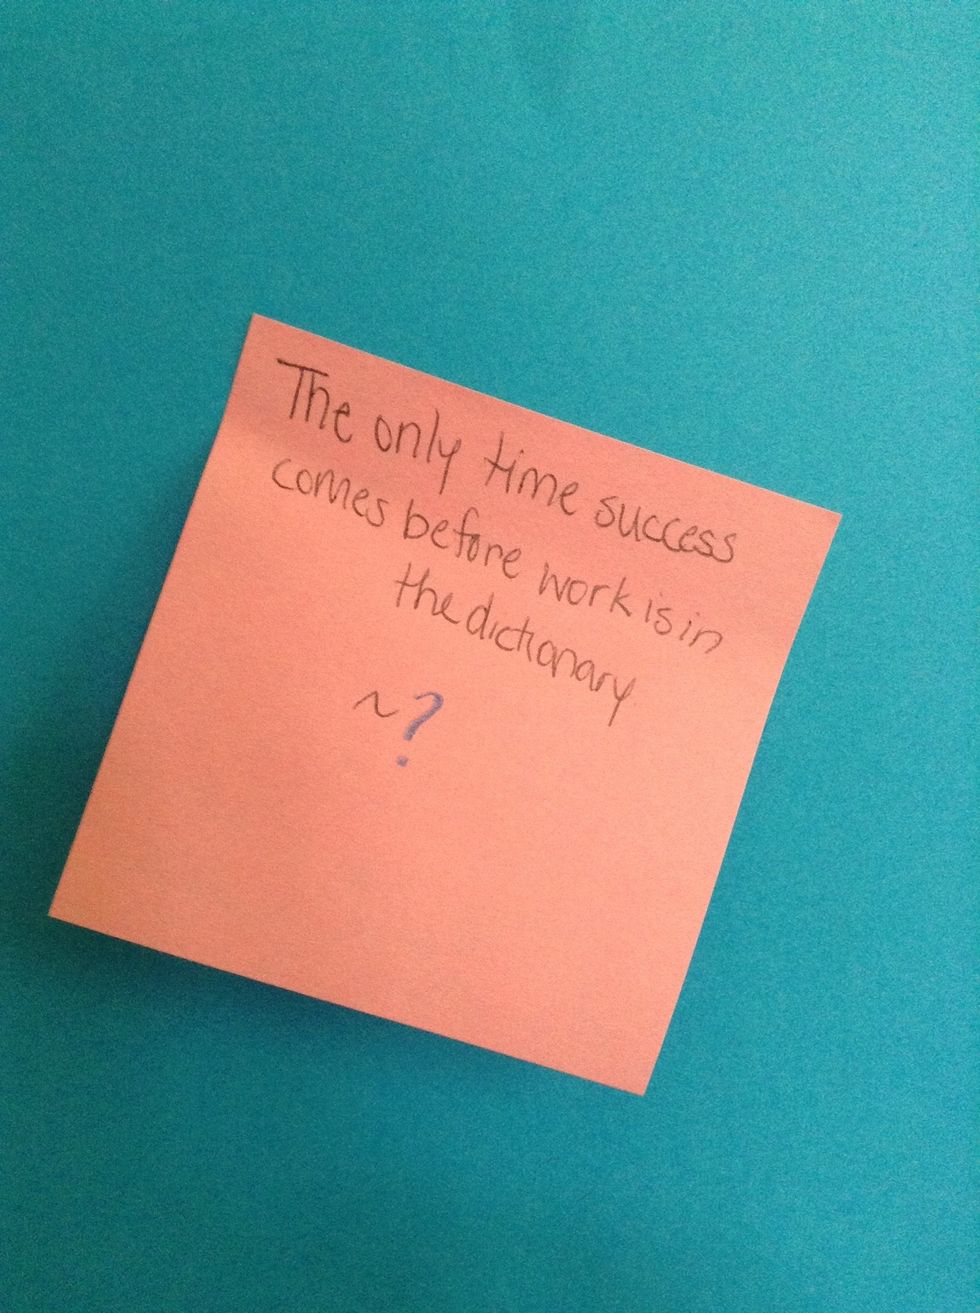 The only time success
comes before work is in
the dictionary
~?